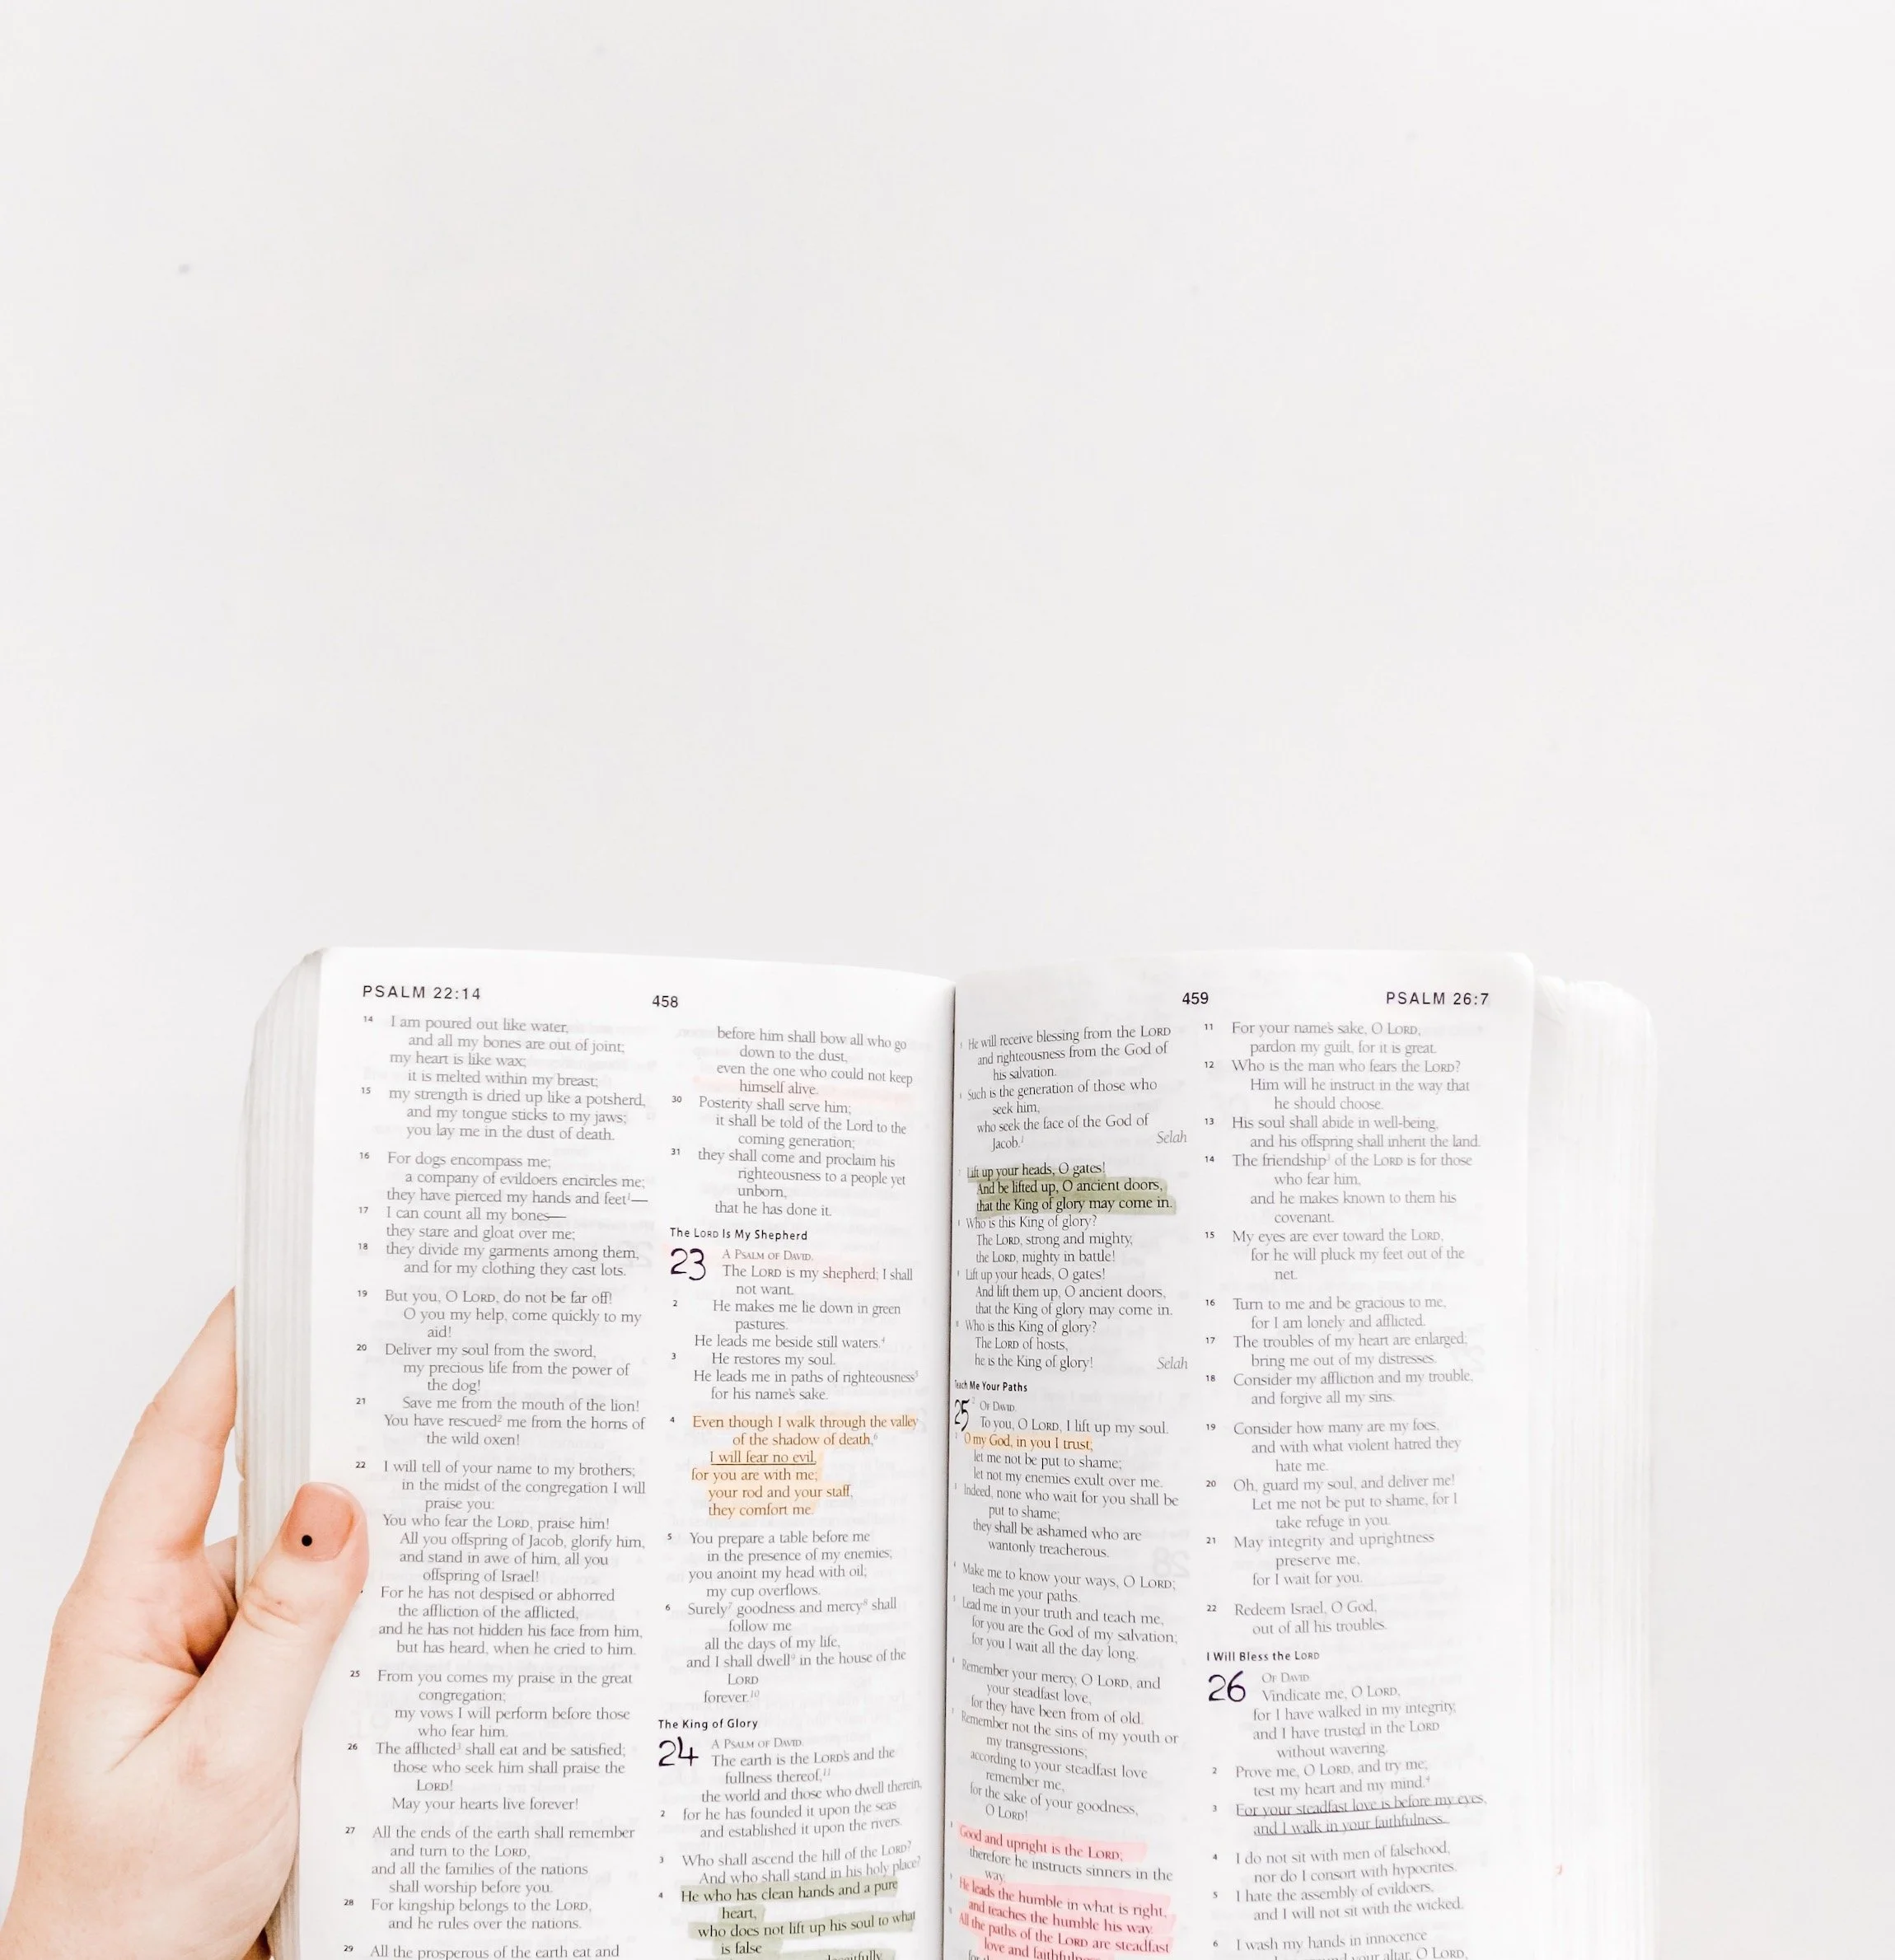 PSALM 22:14
458
14 I am poured out like water,
and all my bones are out of joint;
my heart is like wax;
it is melted within my breast;
15 my strength is dried up like a potsherd,
and my tongue sticks to my jaws;
you lay me in the dust of death.
16 For dogs encompass me;
a company of evildoers encircles me;
they have pierced my hands and feet¹—
17 I can count all my bones—
they stare and gloat over me;
18 they divide my garments among them,
and for my clothing they cast lots.
19 But you, O LORD, do not be far off!
O you my help, come quickly to my
aid!
20 Deliver my soul from the sword,
my precious life from the power of
the dog!
21 Save me from the mouth of the lion!
You have rescued² me from the horns of
the wild oxen!
22 I will tell of your name to my brothers;
in the midst of the congregation I will
praise you:
You who fear the LORD, praise him!
All you offspring of Jacob, glorify him,
and stand in awe of him, all you
offspring of Israel!
For he has not despised or abhorred
the affliction of the afflicted,
and he has not hidden his face from him,
but has heard, when he cried to him.
25 From you comes my praise in the great
congregation;
my vows I will perform before those
who fear him.
26 The afflicted³ shall eat and be satisfied;
those who seek him shall praise the
LORD!
May your hearts live forever!
27 All the ends of the earth shall remember
and turn to the LORD,
and all the families of the nations
shall worship before you.
28 For kingship belongs to the LORD,
and he rules over the nations.
29 All the prosperous of the earth eat and
before him shall bow all who go
down to the dust,
even the one who could not keep
himself alive.
30 Posterity shall serve him;
it shall be told of the Lord to the
coming generation;
31 they shall come and proclaim his
righteousness to a people yet
unborn,
that he has done it.
The LORD Is My Shepherd
23 A PSALM OF DAVID.
The LORD is my shepherd; I shall
not want.
2 He makes me lie down in green
pastures.
He leads me beside still waters.⁴
3 He restores my soul.
He leads me in paths of righteousness⁵
for his name's sake.
4 Even though I walk through the valley
of the shadow of death,⁶
I will fear no evil,
for you are with me;
your rod and your staff,
they comfort me.
5 You prepare a table before me
in the presence of my enemies;
you anoint my head with oil;
my cup overflows.
6 Surely⁷ goodness and mercy⁸ shall
follow me
all the days of my life,
and I shall dwell⁹ in the house of the
LORD
forever.¹⁰
The King of Glory
24 A PSALM OF DAVID.
The earth is the LORD's and the
fullness thereof,¹¹
the world and those who dwell therein,
2 for he has founded it upon the seas
and established it upon the rivers.
3 Who shall ascend the hill of the LORD?
And who shall stand in his holy place?
4 He who has clean hands and a pure
heart,
who does not lift up his soul to what
is false
459
PSALM 26:7
He will receive blessing from the LORD
and righteousness from the God of
his salvation.
Such is the generation of those who
seek him,
who seek the face of the God of
Jacob.¹ Selah
Lift up your heads, O gates!
And be lifted up, O ancient doors,
that the King of glory may come in.
Who is this King of glory?
The LORD, strong and mighty,
the LORD, mighty in battle!
Lift up your heads, O gates!
And lift them up, O ancient doors,
that the King of glory may come in.
Who is this King of glory?
The LORD of hosts,
he is the King of glory! Selah
Teach Me Your Paths
25 OF DAVID.
To you, O LORD, I lift up my soul.
O my God, in you I trust;
let me not be put to shame;
let not my enemies exult over me.
Indeed, none who wait for you shall be
put to shame;
they shall be ashamed who are
wantonly treacherous.
Make me to know your ways, O LORD;
teach me your paths.
Lead me in your truth and teach me,
for you are the God of my salvation;
for you I wait all the day long.
Remember your mercy, O LORD, and
your steadfast love,
for they have been from of old.
Remember not the sins of my youth or
my transgressions;
according to your steadfast love
remember me,
for the sake of your goodness,
O LORD!
Good and upright is the LORD;
therefore he instructs sinners in the
way.
He leads the humble in what is right,
and teaches the humble his way.
All the paths of the LORD are steadfast
love and
11 For your name's sake, O LORD,
pardon my guilt, for it is great.
12 Who is the man who fears the LORD?
Him will he instruct in the way that
he should choose.
13 His soul shall abide in well-being,
and his offspring shall inherit the land.
14 The friendship³ of the LORD is for those
who fear him,
and he makes known to them his
covenant.
15 My eyes are ever toward the LORD,
for he will pluck my feet out of the
net.
16 Turn to me and be gracious to me,
for I am lonely and afflicted.
17 The troubles of my heart are enlarged;
bring me out of my distresses.
18 Consider my affliction and my trouble,
and forgive all my sins.
19 Consider how many are my foes,
and with what violent hatred they
hate me.
20 Oh, guard my soul, and deliver me!
Let me not be put to shame, for I
take refuge in you.
21 May integrity and uprightness
preserve me,
for I wait for you.
22 Redeem Israel, O God,
out of all his troubles.
I Will Bless the LORD
26 OF DAVID.
Vindicate me, O LORD,
for I have walked in my integrity,
and I have trusted in the LORD
without wavering.
2 Prove me, O LORD, and try me;
test my heart and my mind.⁴
3 For your steadfast love is before my eyes,
and I walk in your faithfulness.
4 I do not sit with men of falsehood,
nor do I consort with hypocrites.
5 I hate the assembly of evildoers,
and I will not sit with the wicked.
6 I wash my hands in innocence
altar, O LORD,